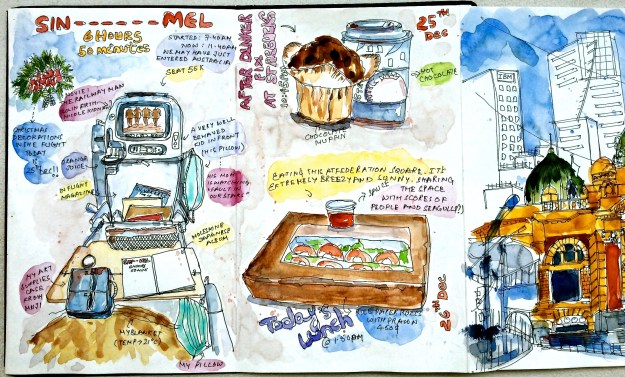 SIN ------ MEL
6 HOURS
50 minutes
STARTED: 7·40AM
NOW: 11·40AM
WE MAY HAVE JUST
ENTERED AUSTRALIA
SEAT 55K
MOVIE:
THE RAILWAY MAN
NICOLE KIDMAN
CHRISTMAS
DECORATIONS
IN THE FLIGHT
TODAY
IS
25TH DEC!!
ORANGE
JUICE
INFLIGHT
MAGAZINE
A VERY WELL
BEHAVED
KID IN FRONT
(HIS PILLOW)
HIS MOM
IS WATCHING
MOLESKINE
JAPANESE
ALBUM
MY ART
SUPPLIES
CASE
FROM
MUJI
MY BLANKET
(TEMP → 21°C)
MY PILLOW
AFTER DINNER
FIX
AT STARBUCKS
10·45PM
25TH
DEC
HOT
CHOCOLATE
CHOCOLATE
MUFFIN
EATING THIS AT FEDERATION SQUARE. IT'S
EXTREMELY BREEZY AND SUNNY. SHARING
THE SPACE
WITH SCORES OF
PEOPLE AND SEAGULLS!)
SAUCE
Today's
Lunch
@ 1·50PM
RICE PAPER ROLLS
WITH PRAWN
26TH DEC
IBM